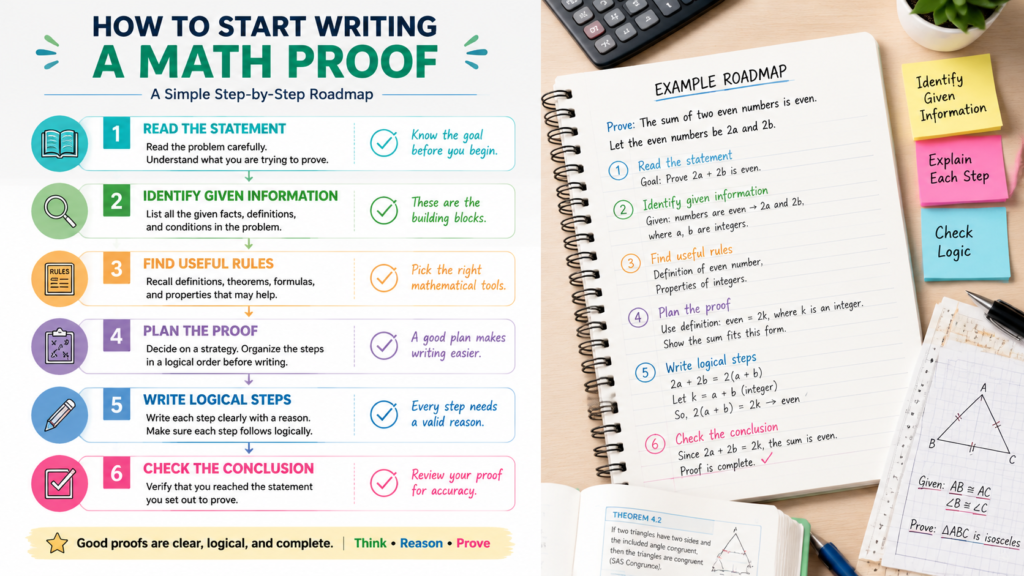 HOW TO START WRITING
A MATH PROOF
A Simple Step-by-Step Roadmap
1
READ THE STATEMENT
Read the problem carefully.
Understand what you are trying to prove.
Know the goal
before you begin.
2
IDENTIFY GIVEN INFORMATION
List all the given facts, definitions,
and conditions in the problem.
These are the
building blocks.
RULES
3
FIND USEFUL RULES
Recall definitions, theorems, formulas,
and properties that may help.
Pick the right
mathematical tools.
4
PLAN THE PROOF
Decide on a strategy. Organize the steps
in a logical order before writing.
A good plan makes
writing easier.
5
WRITE LOGICAL STEPS
Write each step clearly with a reason.
Make sure each step follows logically.
Every step needs
a valid reason.
6
CHECK THE CONCLUSION
Verify that you reached the statement
you set out to prove.
Review your proof
for accuracy.
Good proofs are clear, logical, and complete. | Think • Reason • Prove
EXAMPLE ROADMAP
Prove: The sum of two even numbers is even.
Let the even numbers be 2a and 2b.
1 Read the statement
Goal: Prove 2a + 2b is even.
2 Identify given information
Given: numbers are even → 2a and 2b.
where a, b are integers.
3 Find useful rules
Definition of even number,
Properties of integers.
4 Plan the proof
Use definition: even = 2k, where k is an integer.
Show the sum fits this form.
5 Write logical steps
2a + 2b = 2(a + b)
Let k = a + b (integer)
So, 2(a + b) = 2k → even
6 Check the conclusion
Since 2a + 2b = 2k, the sum is even.
Proof is complete. ✓
Identify
Given
Information
Explain
Each Step
Check
Logic
A
B
C
Given: AB ≅ AC
∠B ≅ ∠C
Prove: △ABC is isosceles
THEOREM 4.2
If two triangles have two sides and
the included angle congruent,
then the triangles are congruent
(SAS Congrunce).
A